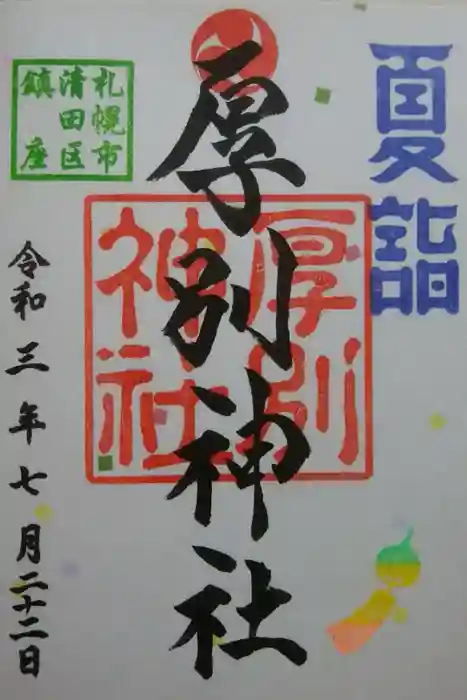 夏詣
札幌市
清田区
鎮座
厚別神社
厚別
神社
令和三年七月二十二日